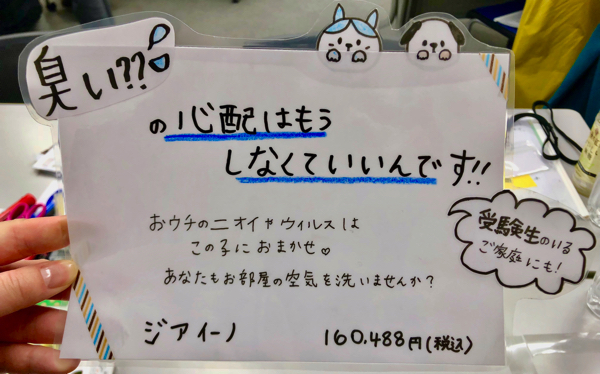 臭い??
の心配はもう
しなくていいんです!!
おウチのニオイやウィルスは
この子におまかせ♡
あなたもお部屋の空気を洗いませんか?
受験生のいる
ご家庭にも!
ジアイーノ
160,488円(税込)